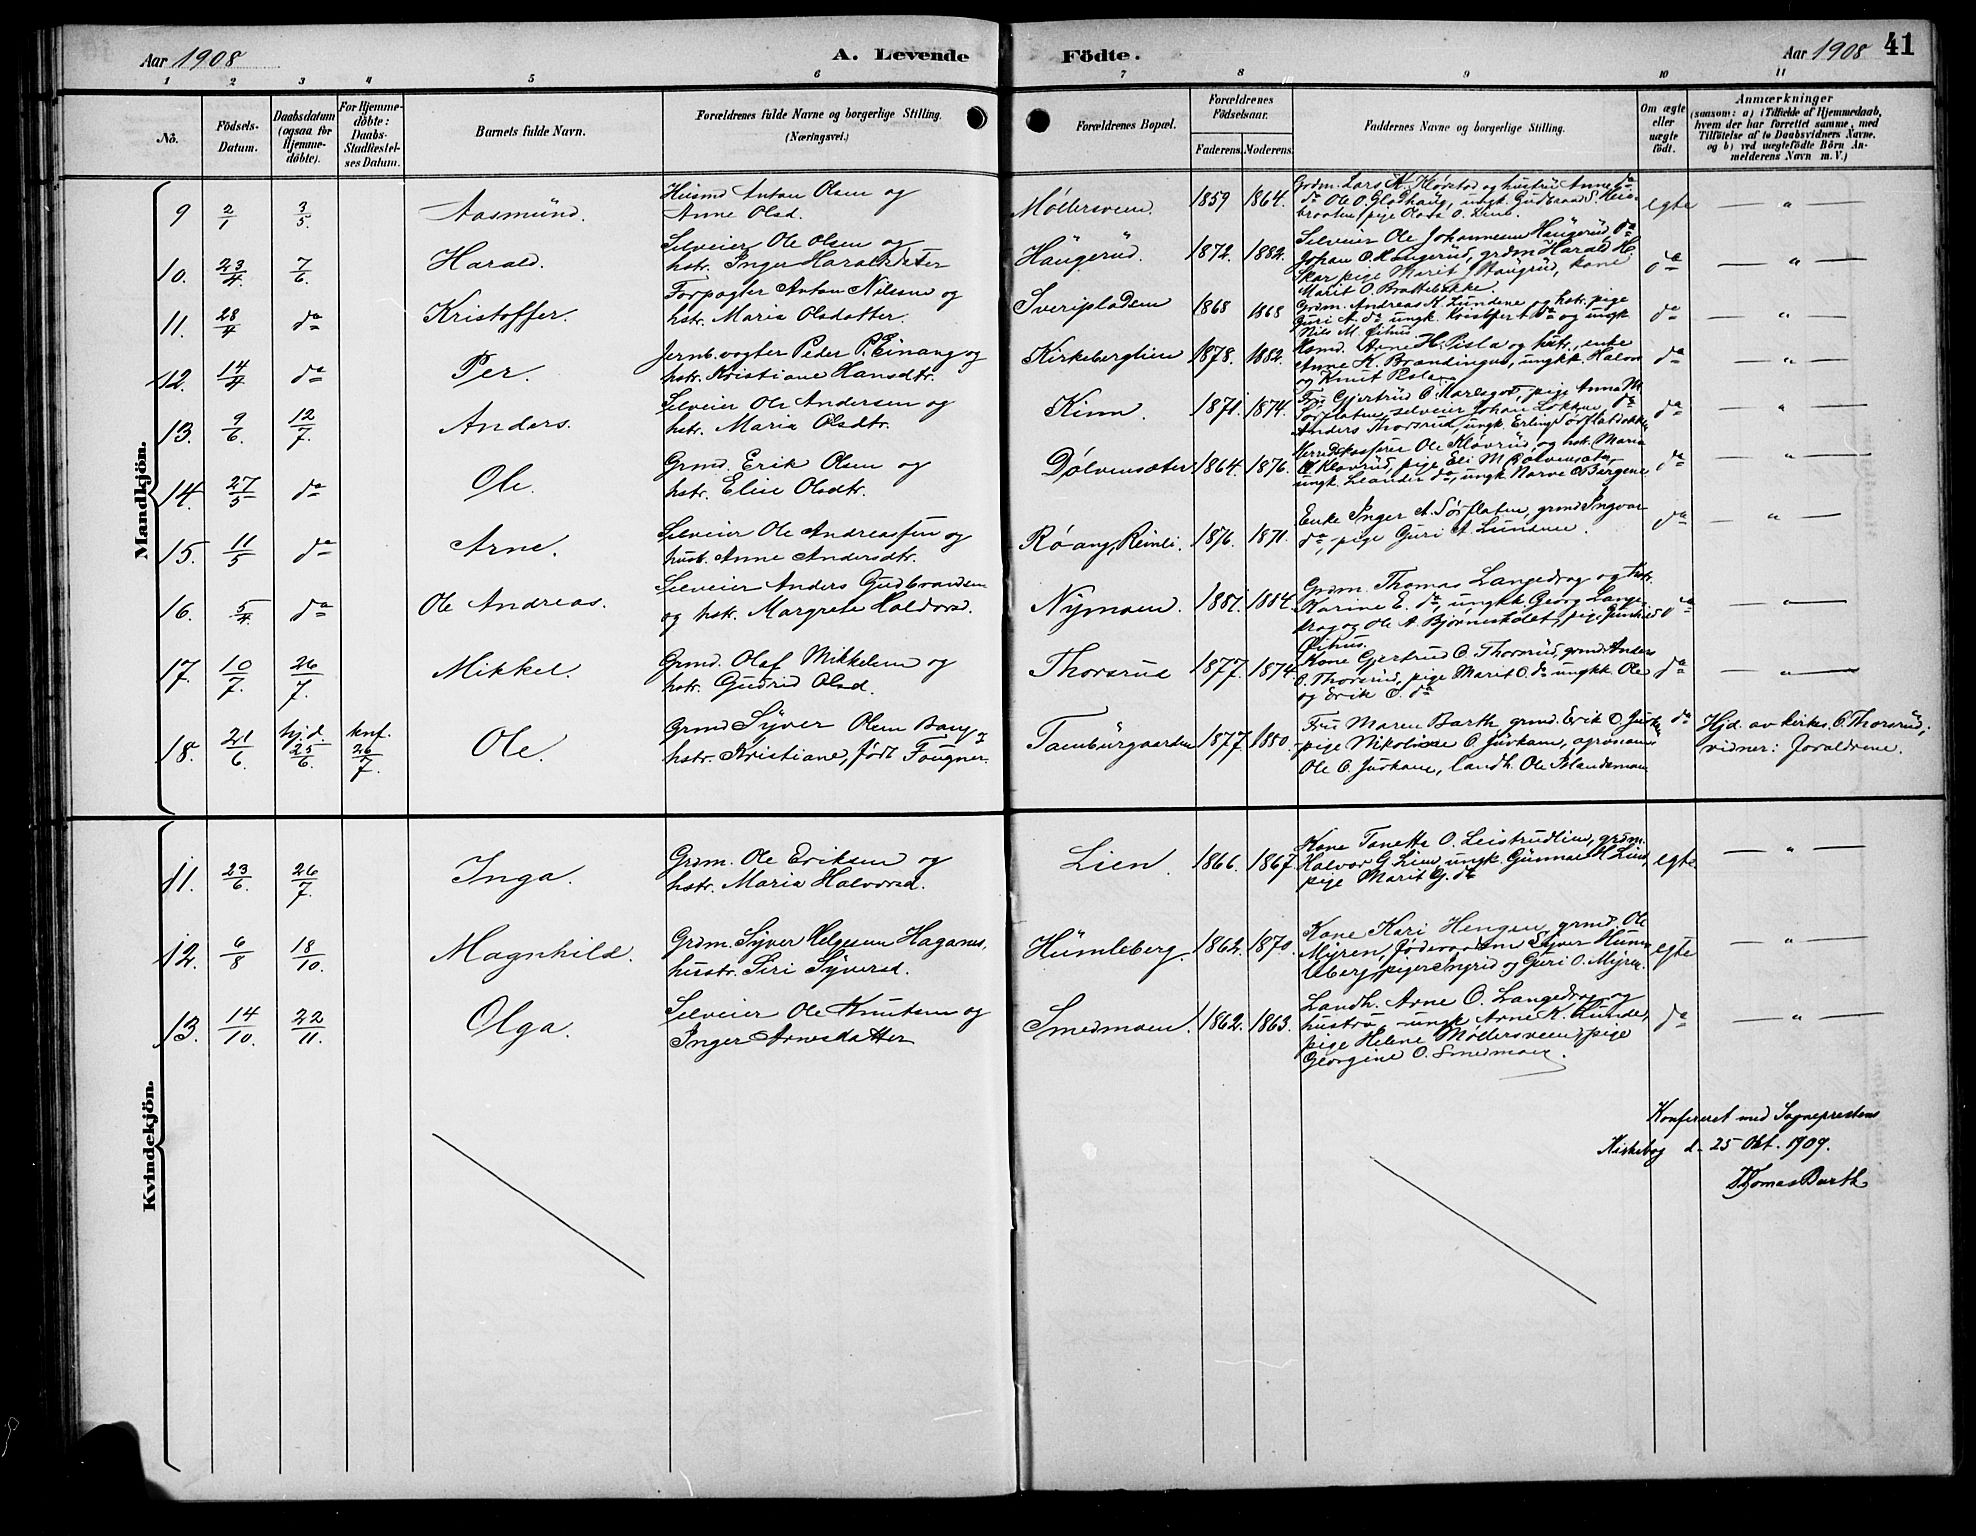 Aar 1908
A. Levende
Födte.
Aar 1908
41
1 2 3 4 5 6 7 8 9 10 11
No.
Födsels-
Datum.
Daabsdatum
(ogsaa for
Hjemme-
döbte).
For Hjemme-
döbte:
Daabs-
Stadfæstel-
ses Datum.
Barnets fulde Navn.
Forældrenes fulde Navne og borgerlige Stilling.
(Næringsvei.)
Forældrenes Bopæl.
Forældrenes
Födselsaar.
Faderens. Moderens.
Faddernes Navne og borgerlige Stilling.
Om ægte
eller
uægte
födt.
Anmærkninger
(saasom: a) i Tilfælde af Hjemmedaab,
hvem der har forrettet samme, med
Tilföielse af to Daabsvidners Navne.
og b) ved uægtefödte Börn An-
melderens Navn m. V.)
Mandkjön.
9 2/1 3/5 Aasmund.
Husmd Anton Olsen og
Anne Olsd.
Møllersveen. 1859 1864.
Grdm. Lars K. og hustru Anne da
da Ole O. ungk. Gudbrand S.
pige O. Lien.
egte — " —
10. 23/4 7/6 Harald.
Selveier Ole Olsen og
hstr. Inger Haraldsdatter
Haugerud. 1872. 1882.
Selveier Ole Johannesen Haugerud, da
Johan O. Haugerud, grdm Harald H.
Skar, pige Marit Haugrud, kone
Marit O. Brattebække.
da — " —
11. 28/4 da Kristoffer.
Forpagter Anton Nilsen og
hstr. Maria Olsdatter.
1868 1868
Grdm. Andreas K. Lundene og hstr. pige
Guri A. da ungk. Kristoffer A da og ungk
Nils M. Øihus
da — " —
12. 14/4 da Per.
Jernb.vogter Peder P. Einang og
hstr. Kristiane Hansdtr.
Kirkeberglien 1878. 1882.
Husmd. Arne H. Pisla og hstr., enke
Anne K. Brandingen, ungkk. Halvor
og Knut Pisla
da — " —
13. 9/6 12/7. Anders.
Selveier Ole Andersen og
hstr. Maria Olsdtr.
Kinn. 1871. 1874.
Fru Gjertrud O. pige Anna M.
Sørflaten, selveier Johan Løkken da
Anders Thorsrud, ungk. Erling
da — " —
14. 27/5 da Ole.
Grmd. Erik Olsen og
hstr. Elise Olsdtr.
Dølvensæter 1864. 1876.
Herredskasserer Ole Kløvrud, og hstr. Maria
O. Kløvrud, pige Eli M Dølvensæter,
ungk. Leander da, ungk. Narve O. Bergene
da — " —
15. 11/5 da Arne.
Selveier Ole Andreassen og
hust. Anne Andersdtr.
Røang, Reinli. 1876. 1871.
Enke Inger A. Sørflaten, grmd Ingvar
da, pige Guri A. Lundene.
da — " —
16. 5/4 da Ole Andreas.
Selveier Anders Gudbrandsen
og hstr. Margrete Haldorsd.
Nymoen. 1881. 1884.
Grdm. Thomas Langedrag og hstr.
Karine E. da, ungkk. Georg Lange-
drag og Ole A. Bjørneskolet, pige
Øihus.
da — " —
17. 10/7. 26/7. Mikkel.
Grmd. Olaf Mikkelsen og
hstr. Gudrid Olsd.
Thorsrud 1877. 1874.
Kone Gjertrud O. Thorsrud, grmd Anders
O. Thorsrud, pige Marit O. da ungkk. Ole
og Erik O. da
da — " —
18. 21/6 hj.d. 25/6. knf. 26/7 Ole.
Grmd Syver Olsen Bang og
hstr. Kristiane, født Fougner.
Tamburgaarden 1877. 1880.
Fru Maren Barth grmd. Erik O. Juvkam
pige Nikoline O. Juvkam, agronom
Ole O. Juvkam, landh. Ole Islandsmoen
da
Hjd. av kirkes. O. Thorsrud;
vidner: foreldrene.
Kvindekjön.
11. 23/6. 26/7. Inga.
Grdm. Ole Eriksen og
hstr. Maria Halvorsd.
Lien. 1866. 1867
Kone Tanette O. Leistrudlien, grdm.
Halvor G. Lien, ungk. Gunnar H. Lien,
pige Marit G. da
egte — " —
12. 6/8 18/10. Magnhild.
Grdm. Syver Helgesen Haganes,
hustr. Siri Syversd.
Humleberg 1862. 1870.
Kone Kari Hengen, grmd. Ole
Myren, Syver Hum-
leberg, piger Ingrid og Guri O. Myren.
egte — " —
13. 14/10. 22/11. Olga.
Selveier Ole Knutsen og
Inger Arnesdatter
Smedmoen. 1862. 1863.
Landh. Arne O. Langedrag og
hustru, ungk Arne K. Lunde,
pige Helene Møllersveen, pige
Georgine O. Smedmoen.
da — " —
Konfereret med Sogneprestens
Kirkebog d. 25 Okt. 1909.
Thomas Barth